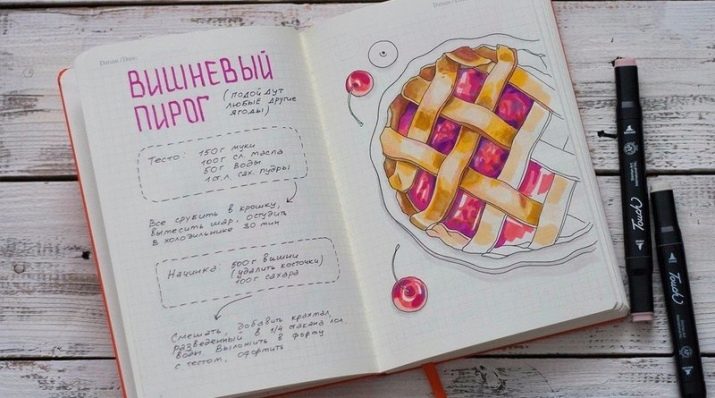 Datum / Date:
ВИШНЕВЫЙ
ПИРОГ
(подойдут
любые другие
ягоды)
Тесто: 150г муки
100г сл. масла
50г воды
1 ст.л сах. пудры
Все срубить в крошку,
вымесить шар, остудить
в холодильнике 30 мин
Начинка: 500г вишни
(удалить косточки)
100г сахара
Смешать, добавить крахмал,
разведенный в 1/4 стакана хол.
воды. Выложить в форму
с тестом, оформить
Datum / Date:
Touch
Touch